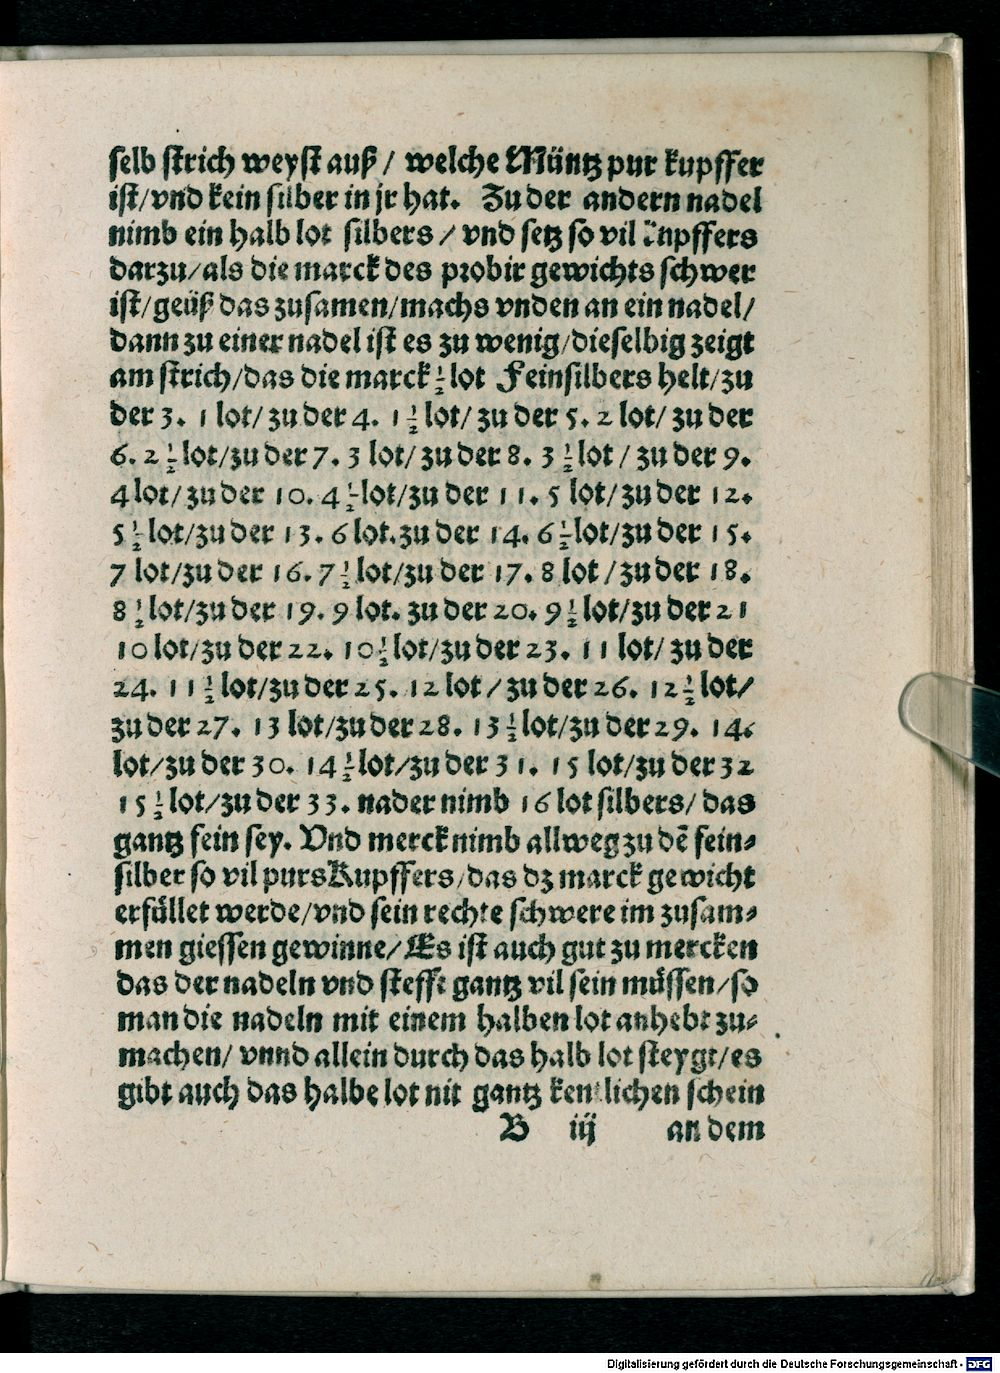 selb strich weyst auß / welche Müntz pur kupffer
ist/vnd kein silber in jr hat. Zu der andern nadel
nimb ein halb lot silbers / vnd setz so vil kupffers
darzu/als die marck des probir gewichts schwer
ist/geüß das zusamen/machs vnden an ein nadel/
dann zu einer nadel ist es zu wenig/dieselbig zeigt
am strich/das die marck ½ lot Feinsilbers helt/zu
der 3. 1 lot/zu der 4. 1 ½ lot/ zu der 5. 2 lot/ zu der
6. 2 ½ lot/zu der 7. 3 lot/ zu der 8. 3 ½ lot / zu der 9.
4 lot/zu der 10. 4 ½ lot/zu der 11. 5 lot/zu der 12.
5 ½ lot/zu der 13. 6 lot.zu der 14. 6 ½ lot/zu der 15.
7 lot/zu der 16. 7 ½ lot/zu der 17. 8 lot / zu der 18.
8 ½ lot/zu der 19. 9 lot. zu der 20. 9 ½ lot/zu der 21
10 lot/zu der 22. 10 ½ lot/zu der 23. 11 lot/ zu der
24. 11 ½ lot/zu der 25. 12 lot / zu der 26. 12 ½ lot/
zu der 27. 13 lot/zu der 28. 13 ½ lot/zu der 29. 14.
lot/zu der 30. 14 ½ lot/zu der 31. 15 lot/zu der 32
15 ½ lot/zu der 33. nader nimb 16 lot silbers/ das
gantz fein sey. Vnd merck nimb allweg zu dē fein⸗
silber so vil purs Kupffers/das dz marck gewicht
erfüllet werde/vnd sein rechte schwere im zusam⸗
men giessen gewinne/ Es ist auch gut zu mercken
das der nadeln vnd stefft gantz vil sein müssen/so
man die nadeln mit einem halben lot anhebt zu⸗
machen/ vnnd allein durch das halb lot steygt/es
gibt auch das halbe lot nit gantz kentlichen schein
B iij an dem
Digitalisierung gefördert durch die Deutsche Forschungsgemeinschaft - DFG